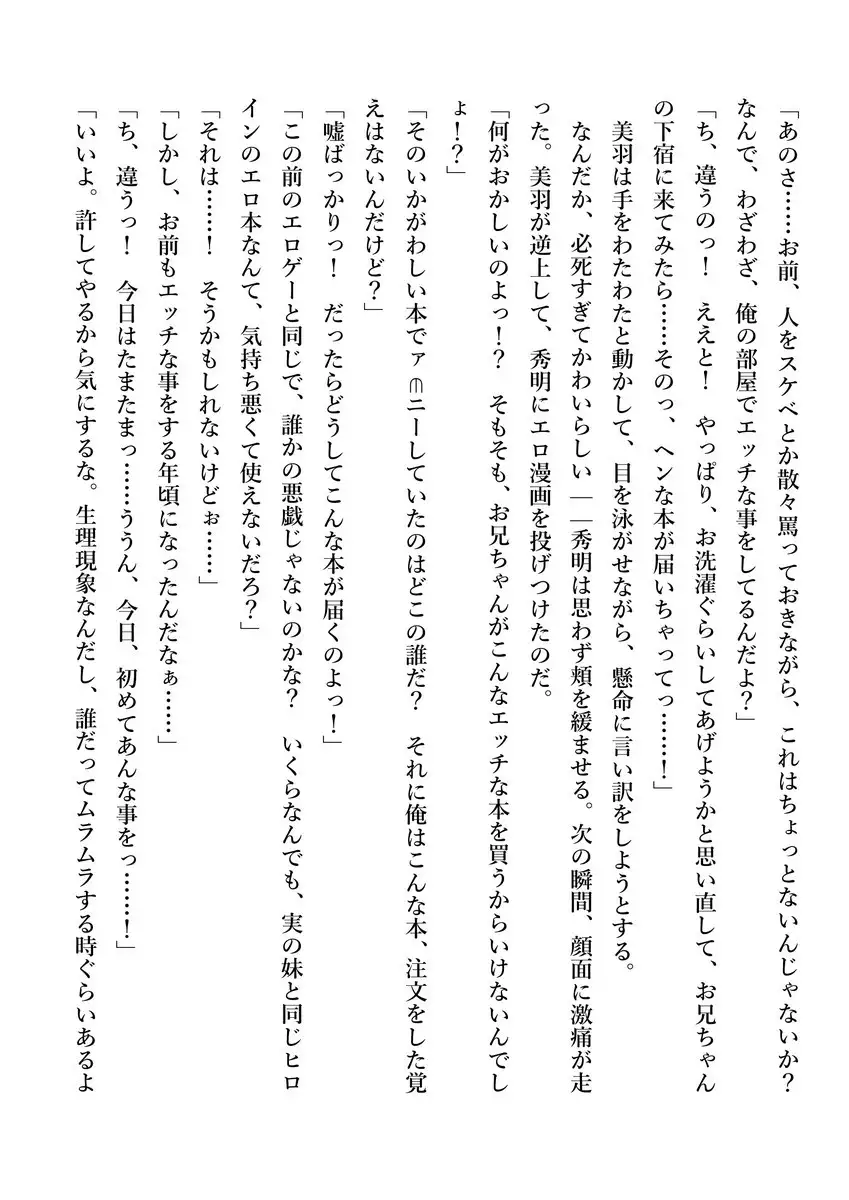 「あのさ……お前、人をスケベとか散々罵っておきながら、これはちょっとないんじゃないか？
なんで、わざわざ、俺の部屋でエッチな事をしてるんだよ？」
「ち、違うのっ！　ええと！　やっぱり、お洗濯ぐらいしてあげようかと思い直して、お兄ちゃん
の下宿に来てみたら……そのっ、ヘンな本が届いちゃってっ……！」
　美羽は手をわたわたと動かして、目を泳がせながら、懸命に言い訳をしようとする。
　なんだか、必死すぎてかわいらしい――秀明は思わず頬を緩ませる。次の瞬間、顔面に激痛が走
った。美羽が逆上して、秀明にエロ漫画を投げつけたのだ。
「何がおかしいのよっ！？　そもそも、お兄ちゃんがこんなエッチな本を買うからいけないんでし
ょ！？」
「そのいかがわしい本でァ⋒ニーしていたのはどこの誰だ？　それに俺はこんな本、注文をした覚
えはないんだけど？」
「嘘ばっかりっ！　だったらどうしてこんな本が届くのよっ！」
「この前のエロゲーと同じで、誰かの悪戯じゃないのかな？　いくらなんでも、実の妹と同じヒロ
インのエロ本なんて、気持ち悪くて使えないだろ？」
「それは……！　そうかもしれないけどぉ……」
「しかし、お前もエッチな事をする年頃になったんだなぁ……」
「ち、違うっ！　今日はたまたまっ……ううん、今日、初めてあんな事をっ……！」
「いいよ。許してやるから気にするな。生理現象なんだし、誰だってムラムラする時ぐらいあるよ